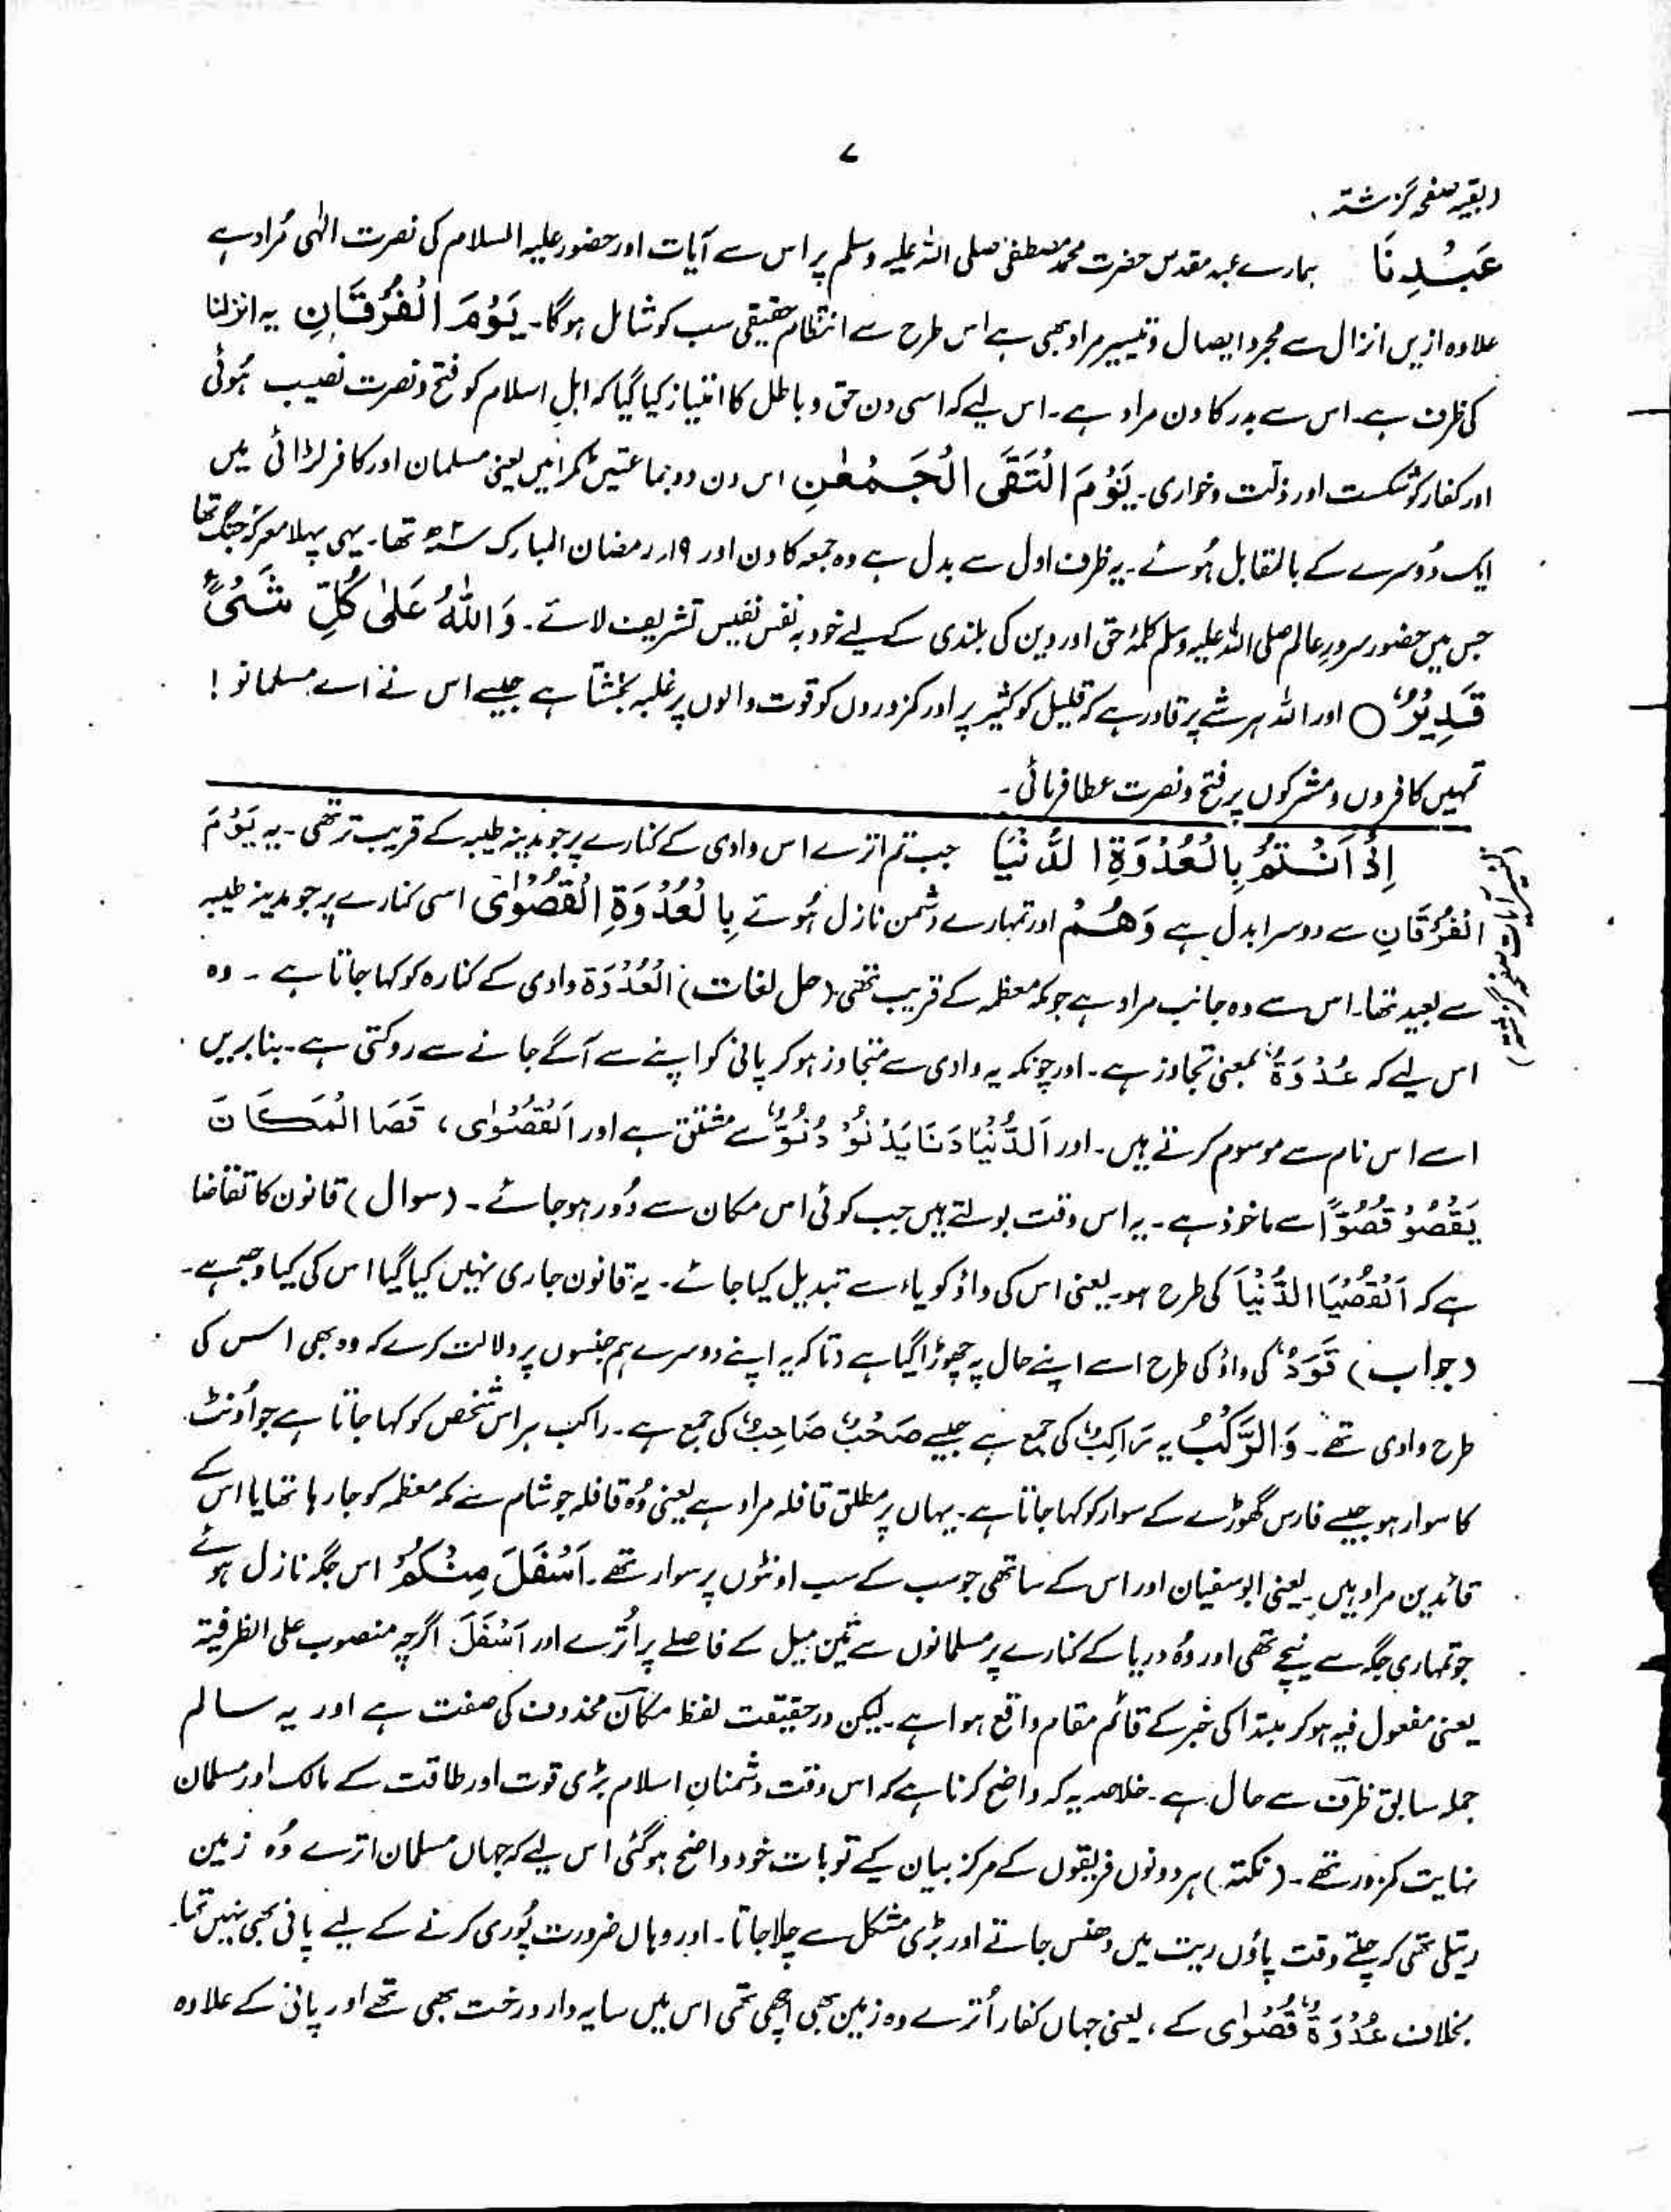 ۷
(بقیہ صفحہ گزشتہ)
عَبْدِنَا ہمارے عبد مقدس حضرت محمد مصطفیٰ صلی اللہ علیہ وسلم پر اس سے آیات اور حضور علیہ السلام کی نصرت الٰہی مُراد ہے
علاوہ ازیں انزال سے مجرد ایصال و تیسیر مراد بھی ہے اس طرح سے انتظام حقیقی سب کو شامل ہوگا۔ یَوْمَ الْفُرْقَانِ یہ انزلنا
کی ظرف ہے۔ اس سے بدر کا دن مراد ہے۔ اس لیے کہ اسی دن حق و باطل کا امتیاز کیا گیا کہ اہلِ اسلام کو فتح و نصرت نصیب ہُوئی
اور کفار کو شکست اور ذلت و خواری۔ یَوْمَ الْتَقَی الْجَمْعٰنِ اس دن دو جماعتیں ٹکرائیں یعنی مسلمان اور کافر لڑائی میں
ایک دُوسرے کے بالمقابل ہُوئے۔ یہ ظرف اول سے بدل ہے وہ جمعہ کا دن اور ۱۹؍ رمضان المبارک ۲ھ تھا۔ یہی پہلا معرکۂ جنگ تھا
جس میں حضور سرورِ عالم صلی اللہ علیہ وسلم کلمۂ حق اور دین کی بلندی کے لیے خود بہ نفس نفیس تشریف لائے۔ وَاللّٰهُ عَلٰی کُلِّ شَیْءٍ
قَدِیْرٌ ○ اور اللہ ہر شے پر قادر ہے کہ قلیل کو کثیر پر اور کمزوروں کو قوت والوں پر غلبہ بخشتا ہے جیسے اس نے اے مسلمانو!
تمہیں کافروں و مشرکوں پر فتح و نصرت عطا فرمائی۔
(تفسیر آیات صفحہ گزشتہ)
اِذْ اَنْتُمْ بِالْعُدْوَةِ الدُّنْیَا جب تم اترے اس وادی کے کنارے پر جو مدینہ طیبہ کے قریب تر تھی۔ یہ یَوْمَ
الْفُرْقَانِ سے دوسرا بدل ہے وَهُمْ اور تمہارے دشمن نازل ہُوئے بِالْعُدْوَةِ الْقُصْوٰی اسی کنارے پر جو مدینہ طیبہ
سے بعید تھا۔ اس سے وہ جانب مراد ہے جو مکہ معظمہ کے قریب تھی۔ (حل لغات) اَلْعُدْوَۃ وادی کے کنارہ کو کہا جاتا ہے ۔ وہ
اس لیے کہ عُدْوَۃٌ بمعنی تجاوز ہے۔ اور چونکہ یہ وادی سے متجاوز ہو کر پانی کو اپنے سے آگے جانے سے روکتی ہے۔ بنا بریں
اسے اس نام سے موسوم کرتے ہیں۔ اور اَلدُّنْیَا دَنَا یَدْنُوْ دُنُوٌّ سے مشتق ہے اور اَلْقُصْوٰی، قَصَا الْمَکَانَ
یَقْصُوْ قُصُوًّا سے ماخوذ ہے۔ یہ اس وقت بولتے ہیں جب کوئی اس مکان سے دُور ہو جائے۔ (سوال) قانون کا تقاضا
ہے کہ اَلْقُصْیَا الدُّنْیَا کی طرح ہو۔ یعنی اس کی واؤ کو یاء سے تبدیل کیا جائے۔ یہ قانون جاری نہیں کیا گیا اس کی کیا وجہ ہے۔
(جواب) قَوَدٌ کی واؤ کی طرح اسے اپنے حال پہ چھوڑا گیا ہے تاکہ یہ اپنے دوسرے ہم جنسوں پر دلالت کرے کہ وہ بھی اس کی
طرح وادی تھے۔ وَالرَّکْبُ یہ رَاکِبٌ کی جمع ہے جیسے صَحْبٌ صَاحِبٌ کی جمع ہے۔ راکب ہر اس شخص کو کہا جاتا ہے جو اُونٹ
کا سوار ہو جیسے فارس گھوڑے کے سوار کو کہا جاتا ہے۔ یہاں پر مطلق قافلہ مراد ہے یعنی وُہ قافلہ جو شام سے مکہ معظمہ کو جا رہا تھا یا اس کے
قائدین مراد ہیں۔ یعنی ابوسفیان اور اس کے ساتھی جو سب کے سب اونٹوں پر سوار تھے۔ اَسْفَلَ مِنْکُمْ اس جگہ نازل ہوئے
جو تمہاری جگہ سے نیچے تھی اور وُہ دریا کے کنارے پر مسلمانوں سے تین میل کے فاصلے پر اُترے اور اَسْفَلَ اگرچہ منصوب علی الظرفیۃ
یعنی مفعول فیہ ہو کر مبتدا کی خبر کے قائم مقام واقع ہوا ہے۔ لیکن درحقیقت لفظ مکان محذوف کی صفت ہے اور یہ سالم
جملہ سابق ظرف سے حال ہے۔ خلاصہ یہ کہ واضح کرنا ہے کہ اس وقت دشمنانِ اسلام بڑی قوت اور طاقت کے مالک اور مسلمان
نہایت کمزور تھے۔ (نکتہ) ہر دونوں فریقوں کے مرکز بیان کیے تو بات خود واضح ہو گئی اس لیے کہ جہاں مسلمان اترے وُہ زمین
ریتلی تھی کہ چلتے وقت پاؤں ریت میں دھنس جاتے اور بڑی مشکل سے چلا جاتا۔ اور وہاں ضرورت پُوری کرنے کے لیے پانی بھی نہیں تھا۔
بخلاف عُدْوَۃٌ قُصْوٰی کے، یعنی جہاں کفار اُترے وہ زمین بھی اچھی تھی اس میں سایہ دار درخت بھی تھے اور پانی کے علاوہ